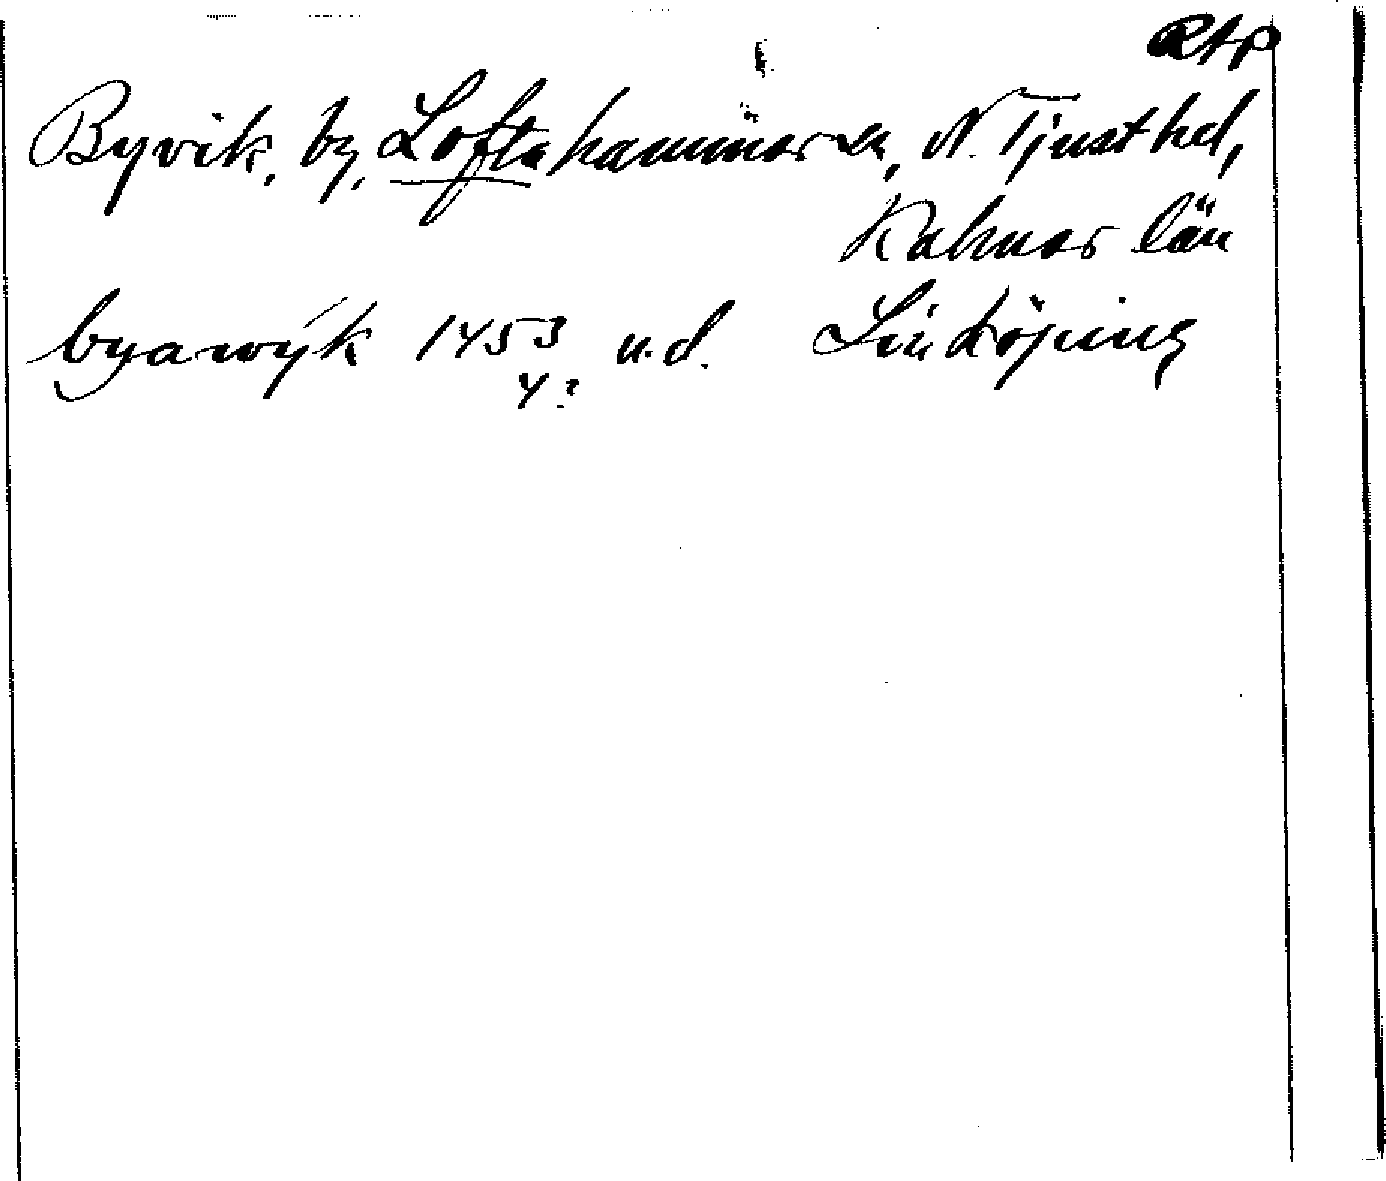 RAp
Byvik, by, Loftahammar sn, N. Tjust hd,
Kalmar län
byawÿk 1453 u.d. Linköping
4: